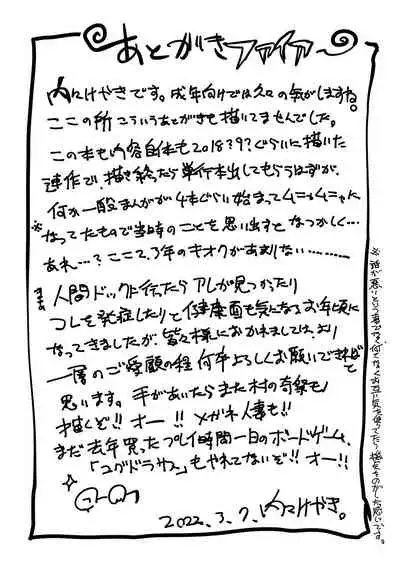 あとがきファイアー
内々けやきです。成年向けでは久々の気がしますね。
ここの所こういうあとがきも描いてませんでした。
この本も内容自体も2018?9?ぐらいに描いた
連作で、描き終ったら単行本出してもらうはずが、
何か一般まんがが4本ぐらい始まってムニャムニャに
※なってたもので当時のことを思い出すとなつかしく…
あれ…?ここ2、3年のキオクがあまりない………
まぁ人間ドックに行ったらアレが見つかったり
コレを発症したりと健康面も気になるお年頃に
なってきましたが、皆々様におかれましては、より
一層のご愛顧の程何卒よろしくお願いできればと
思います。手があいたらまた村の奇祭も
描くぞ!!オー!!メガネ人妻も!!
まだ去年買ったプレイ時間一日のボードゲーム、
「ユグドラサス」もやれてないぞ!!オー!!
2022、3、7、内々けやき。
※誰が悪いという事でなく何となくお互い気を使ってたら機をのがした感じです。